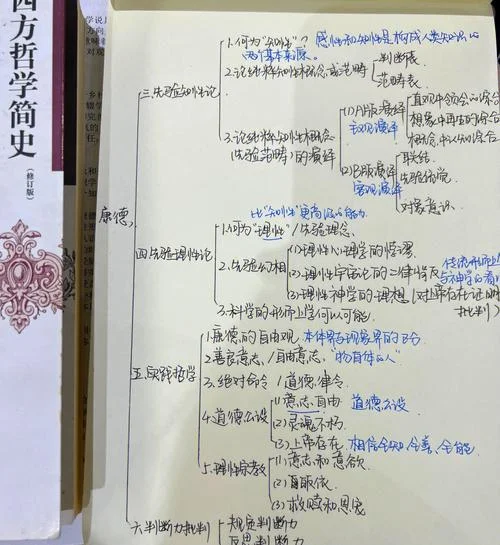 西方哲学简史
(修订版)
康德
三.先验知性论
1.何为“知性”? 感性和知性是构成人类知识的
两个基本来源。
2.论纯粹知性概念或范畴
判断表
范畴表
3.论纯粹知性概念
(先验范畴)的演绎
(1)A版演绎
主观演绎
直观中领会的综合
想象中再生的综合
概念中认知的综合
(2)B版演绎
客观演绎
联结
先验统觉
对象意识
四.先验理性论
比“知性”更高级的能力
1.何为“理性”/先验理念
2.先验幻相
(1)理性心理学的悖谬
(2)理性宇宙论的二律背反
(3)理性神学的理想(对上帝存在证明的
批判)
3.科学的形而上学何以可能
五.实践哲学
1.康德的自由观 本体界与现象界的
2.善良意志/自由意志“物自体的人”
3.绝对命令/道德律令
4.道德公设
(1)意志自由 道德公设
(2)灵魂不朽
(3)上帝存在 相信全知、全善、全能
5.理性宗教
(1)意志和意欲
(2)
(3)救赎和恩宠
六.判断力批判
规定判断力
反思判断力